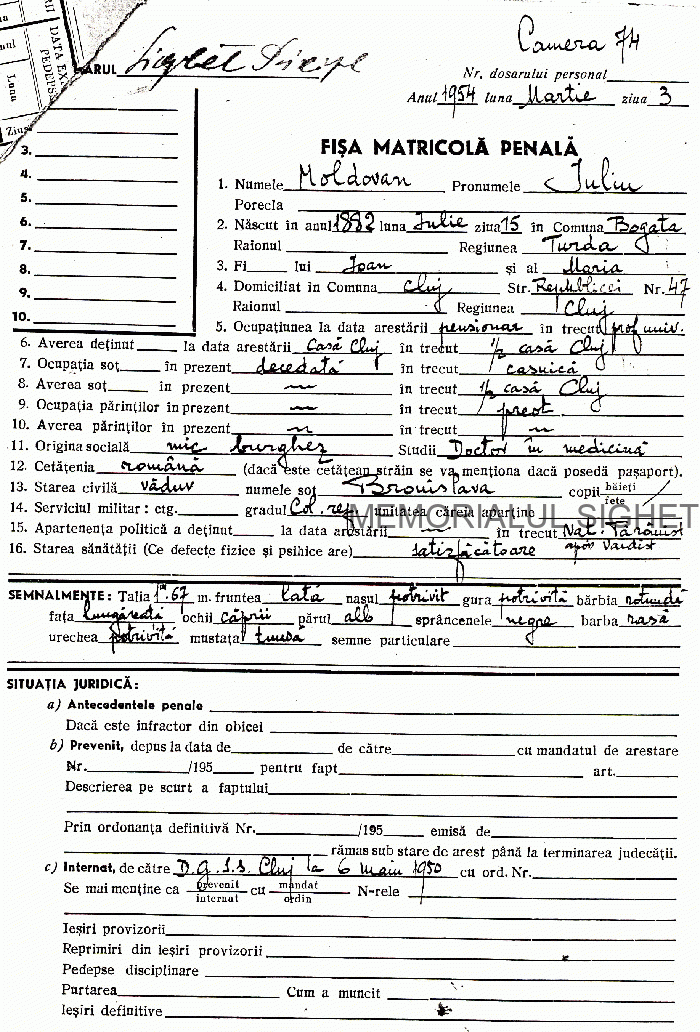 Camera 74
ARUL Sighet
Nr. dosarului personal
Anul 1954 luna Martie ziua 3
DATA EX
PEDEPS
Luna
Ziu
3.
4.
5.
6.
7.
8.
9.
10.
FIȘA MATRICOLĂ PENALĂ
1. Numele Moldovan Pronumele Iuliu
Porecla
2. Născut în anul 1882 luna Iulie ziua 15 în Comuna Bogata
Raionul Regiunea Turda
3. Fi lui Ioan și al Maria
4. Domiciliat în Comuna Cluj Str. Republicei Nr. 47
Raionul Regiunea Cluj
5. Ocupațiunea la data arestării pensionar în trecut prof. univ.
6. Averea deținut la data arestării Casă Cluj în trecut 1/2 casă Cluj
7. Ocupația soț în prezent decedată în trecut casnică
8. Averea soț în prezent ~ în trecut 1/2 casă Cluj
9. Ocupația părinților în prezent ~ în trecut preot
10. Averea părinților în prezent ~ în trecut ~
11. Origina socială mic burghez Studii Doctor în medicină
12. Cetățenia română (dacă este cetățean străin se va menționa dacă posedă pașaport).
13. Starea civilă văduv numele soț Bronislava copii băieți
fete
14. Serviciul militar: ctg. gradul Col. rez. unitatea căreia aparține
MEMORIALUL SIGHET
15. Apartenența politică a deținut la data arestării ~ în trecut Naț. Țărănist
16. Starea sănătății (Ce defecte fizice și psihice are) satisfăcătoare apoi Vaidist
SEMNALMENTE: Talia 1m.67 m. fruntea lată nasul potrivit gura potrivită bărbia rotundă
fața lungăreață ochii căprii părul alb sprâncenele negre barba rasă
urechea potrivită mustața tunsă semne particulare
SITUAȚIA JURIDICĂ:
a) Antecedentele penale
Dacă este infractor din obicei
b) Prevenit, depus la data de de către cu mandatul de arestare
Nr. /195 pentru fapt art.
Descrierea pe scurt a faptului
Prin ordonanța definitivă Nr. /195 emisă de
rămas sub stare de arest până la terminarea judecății.
c) Internat, de către D.G.S.S. Cluj la 6 maiu 1950 cu ord. Nr.
Se mai menține ca prevenit cu mandat N-rele
internat ordin
Ieșiri provizorii
Reprimiri din ieșiri provizorii
Pedepse disciplinare
Purtarea Cum a muncit
Ieșiri definitive